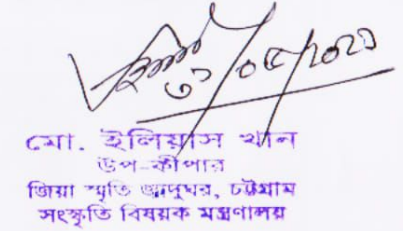 ৩১/০৫/২০২১
মো. ইলিয়াস খান
উপ-কীপার
জিয়া স্মৃতি জাদুঘর, চট্টগ্রাম
সংস্কৃতি বিষয়ক মন্ত্রণালয়